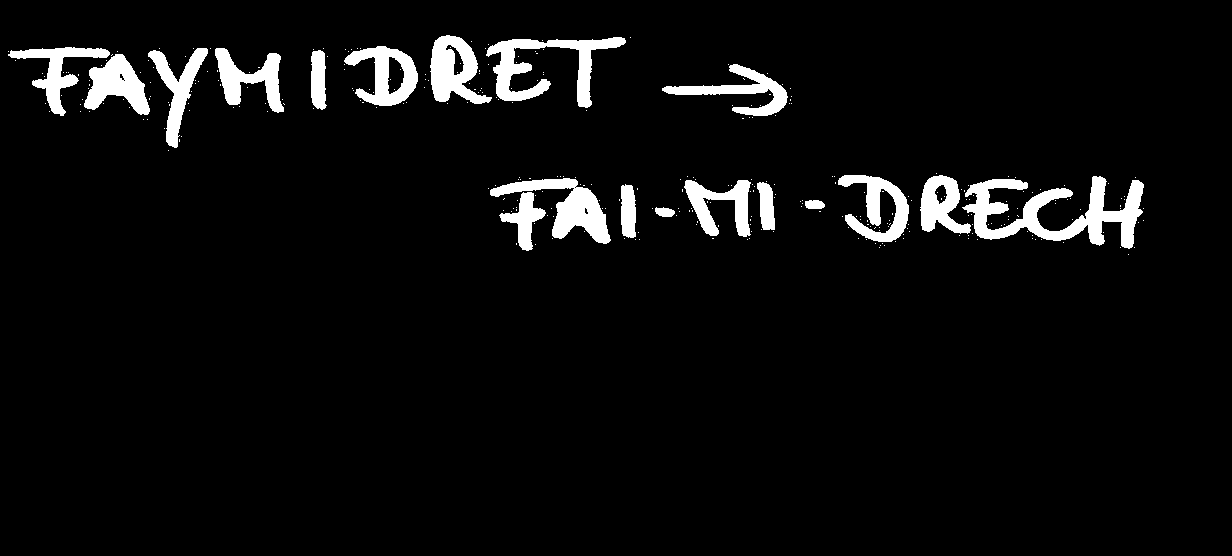 FAYMIDRET →
FAI-MI-DRECH